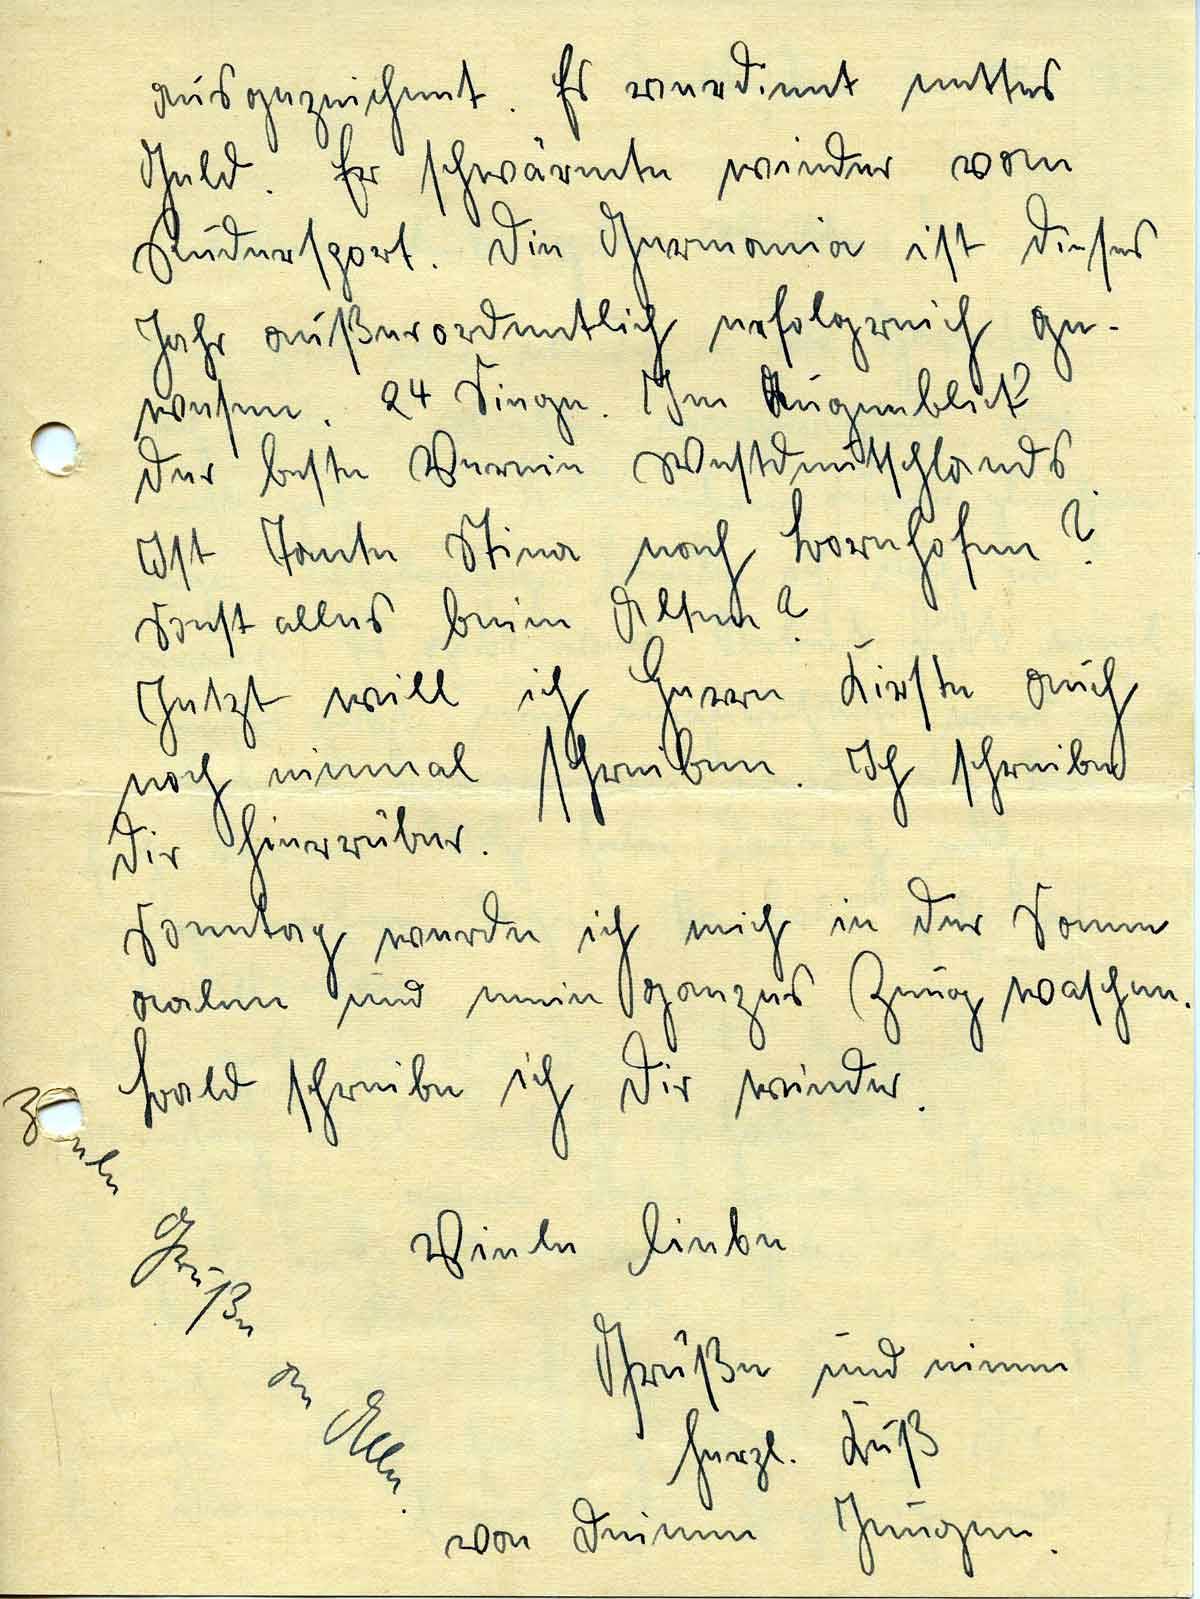 ausgezeichnet. Er verdient nettes
Geld. Er schwärmte wieder vom
Rudersport. Die Germania ist dieses
Jahr außerordentlich erfolgreich ge-
wesen. 24 Siege. Im Augenblick
der beste Verein Westdeutschlands.
Ist Tante Stina noch Bornhofen?
Sonst alles beim Alten?
Jetzt will ich Herrn Kirste auch
noch einmal schreiben. Ich schreibe
Dir hierrüber.
Sonntag werde ich mich in der Sonne
aalen und mein ganzes Zeug waschen.
Bald schreibe ich Dir wieder.
Viele liebe
Grüße und einen
herzl. Kuß
von Deinem Jungen.
Grüße an Alle.